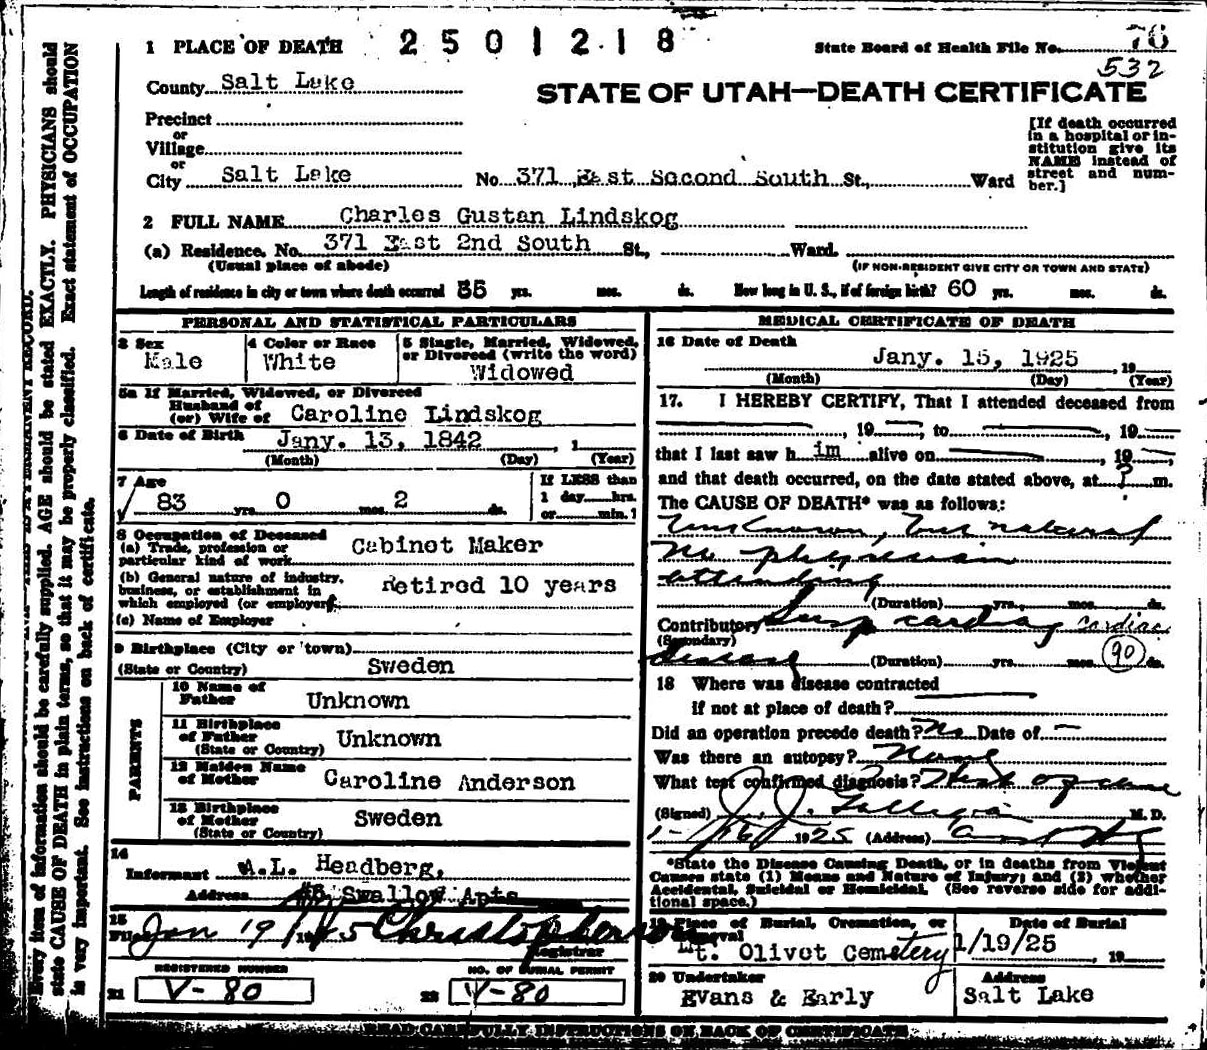 1 PLACE OF DEATH 2501218 State Board of Health File No. 76
532
County Salt Lake
STATE OF UTAH—DEATH CERTIFICATE
Precinct
or
Village
or
City Salt Lake No 371 East Second South St., Ward
[If death occurred
in a hospital or in-
stitution give its
NAME instead of
street and num-
ber.]
2 FULL NAME Charles Gustan Lindskog
(a) Residence. No. 371 East 2nd South St., Ward.
(Usual place of abode) (IF NON-RESIDENT GIVE CITY OR TOWN AND STATE)
Length of residence in city or town where death occurred yrs. mos. ds. How long in U. S., if of foreign birth? 60 yrs. mos. ds.
PERSONAL AND STATISTICAL PARTICULARS
3 Sex
Male
4 Color or Race
White
5 Single, Married, Widowed,
or Divorced (write the word)
Widowed
5a If Married, Widowed, or Divorced
Husband of
(or) Wife of Caroline Lindskog
6 Date of Birth Jany. 13, 1842, 1
(Month) (Day) (Year)
7 Age
83 yrs. 0 mos. 2 ds.
If LESS than
1 day hrs.
or min.?
8 Occupation of Deceased
(a) Trade, profession or
particular kind of work Cabinet Maker
(b) General nature of industry,
business, or establishment in
which employed (or employer) Retired 10 years
(c) Name of Employer
9 Birthplace (City or town)
(State or Country) Sweden
PARENTS
10 Name of
Father Unknown
11 Birthplace
of Father
(State or Country) Unknown
12 Maiden Name
of Mother Caroline Anderson
13 Birthplace
of Mother
(State or Country) Sweden
14
Informant A.L. Headberg,
Address Swallow Apts
15
Filed Jan 19 1925 Christopherson
Registrar
REGISTERED NUMBER
21 V-80
NO. OF BURIAL PERMIT
22 V-80
MEDICAL CERTIFICATE OF DEATH
16 Date of Death
Jany. 15, 1925, 19
(Month) (Day) (Year)
17. I HEREBY CERTIFY, That I attended deceased from
, 19 , to , 19
that I last saw him alive on , 19 ,
and that death occurred, on the date stated above, at ? m.
The CAUSE OF DEATH* was as follows:
Unknown, but natural
No physician
attending
(Duration) yrs. mos. ds.
Contributory Susp cardiac cardiac
(Secondary)
disease (Duration) yrs. mos. 90 ds.
18 Where was disease contracted
if not at place of death?
Did an operation precede death? No Date of —
Was there an autopsy? None
What test confirmed diagnosis? Hist of case
(Signed) J. J. M. D.
1-16 1925 (Address)
*State the Disease Causing Death, or in deaths from Violent
Causes state (1) Means and Nature of Injury; and (2) whether
Accidental, Suicidal or Homicidal. (See reverse side for addi-
tional space.)
19 Place of Burial, Cremation, or
Removal
Mt. Olivet Cemetery
Date of Burial
1/19/25, 19
20 Undertaker
Evans & Early
Address
Salt Lake
READ CAREFULLY INSTRUCTIONS ON BACK OF CERTIFICATE
Every item of information should be carefully supplied. AGE should be stated EXACTLY. PHYSICIANS should
state CAUSE OF DEATH in plain terms, so that it may be properly classified. Exact statement of OCCUPATION
is very important. See instructions on back of certificate.